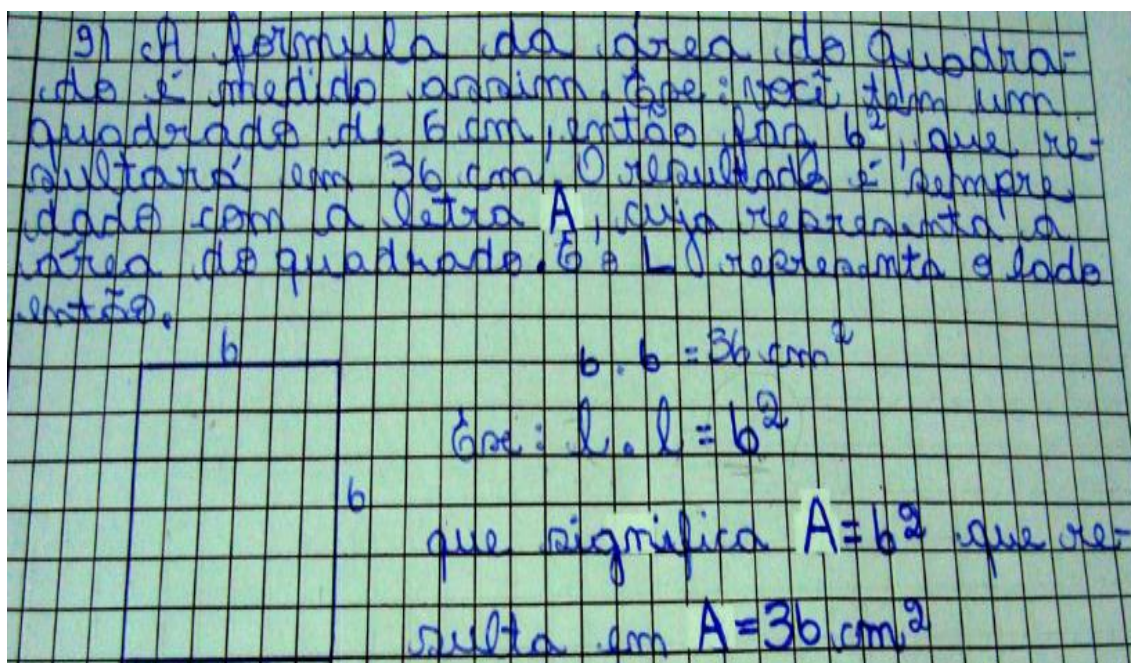 9) A formula da área do Quadra-
do é medido assim. Exe: você tem um
quadrado de 6 cm, então faz 6², que re-
sultará em 36 cm. O resultado é sempre
dado com a letra A, cuja representa a
área do quadrado. E o L representa o lado
então.
6
6 . 6 = 36 cm²
Exe: l . l = 6²
6
que significa A = 6² que re-
sulta em A = 36 cm²